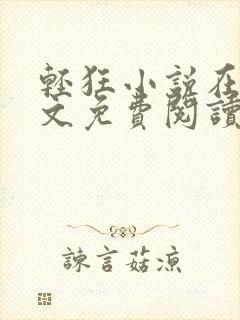 輕狂小説在
文免費閱讀
諫言菇涼